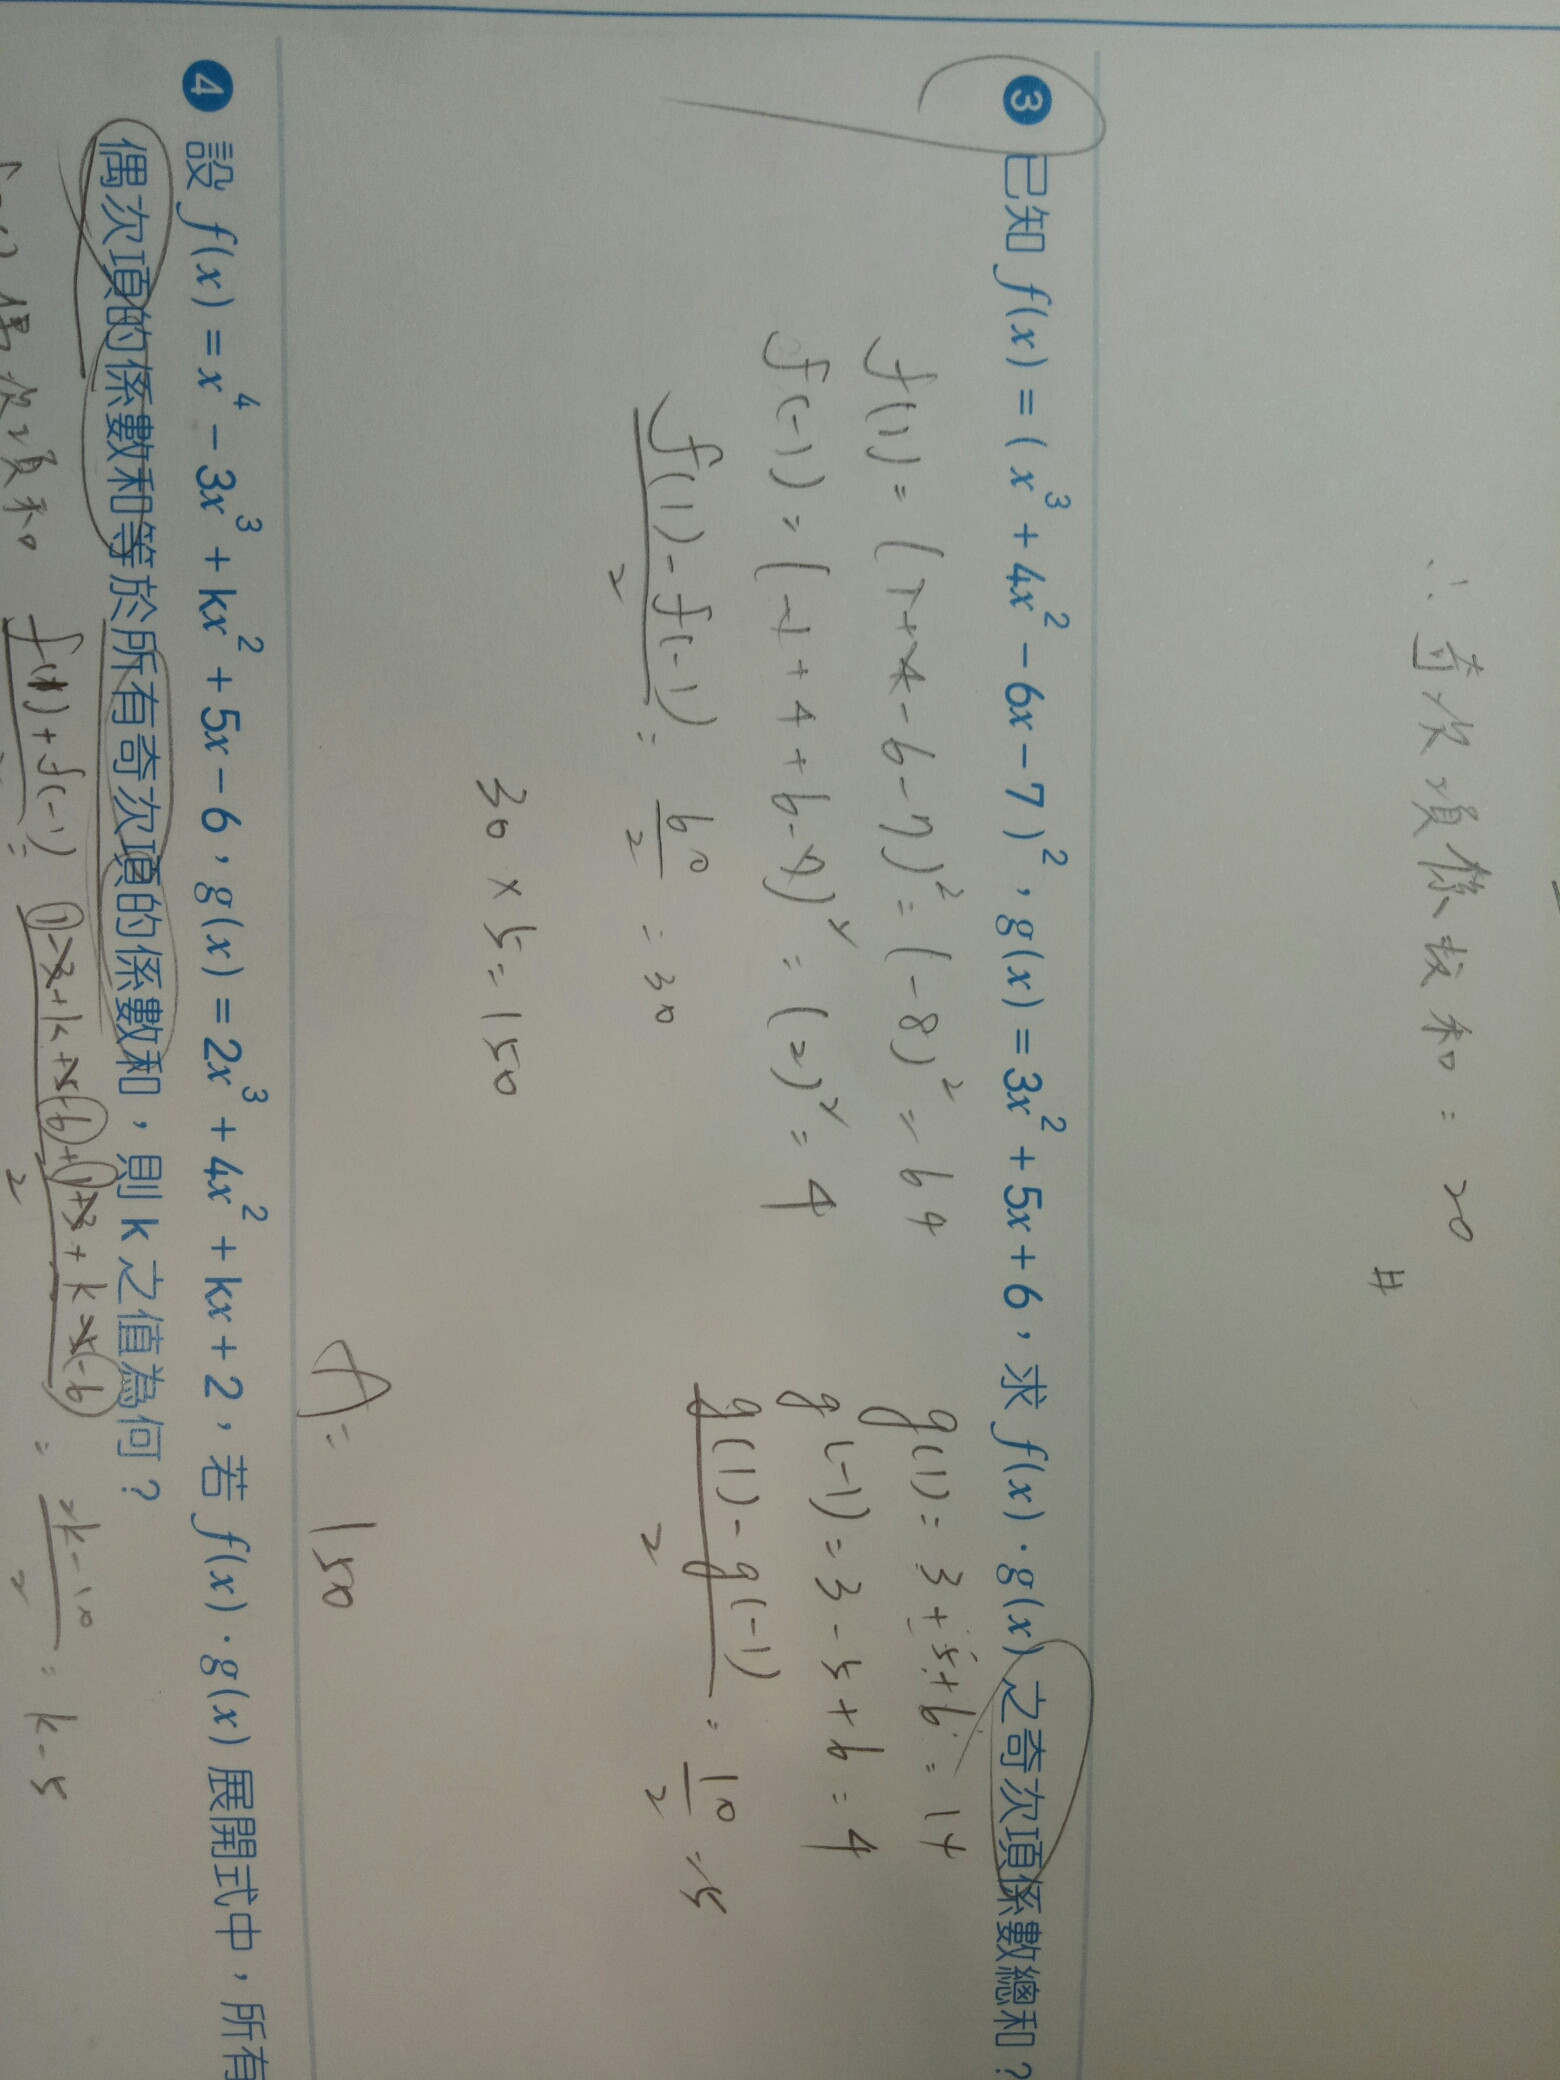 ∴ 奇次項係數和 = 20
#
3 已知 f(x) = (x³ + 4x² − 6x − 7)², g(x) = 3x² + 5x + 6, 求 f(x)·g(x) 之奇次項係數總和?
f(1) = (1+4-6-7)² = (-8)² = 64
g(1) = 3+5+6 = 14
f(-1) = (-1+4+6-7)² = (2)² = 4
g(-1) = 3-5+6 = 4
f(1)-f(-1)/2 = 60/2 = 30
g(1)-g(-1)/2 = 10/2 = 5
30 × 5 = 150
A = 150
4 設 f(x) = x⁴ − 3x³ + kx² + 5x − 6, g(x) = 2x³ + 4x² + kx + 2, 若 f(x)·g(x) 展開式中, 所有
偶次項的係數和等於所有奇次項的係數和, 則 k 之值為何?
偶次項和 f(1)+f(-1)/2 = 1-3+k+5-6+1+3+k-5-6/2 = 2k-10/2 = k-5